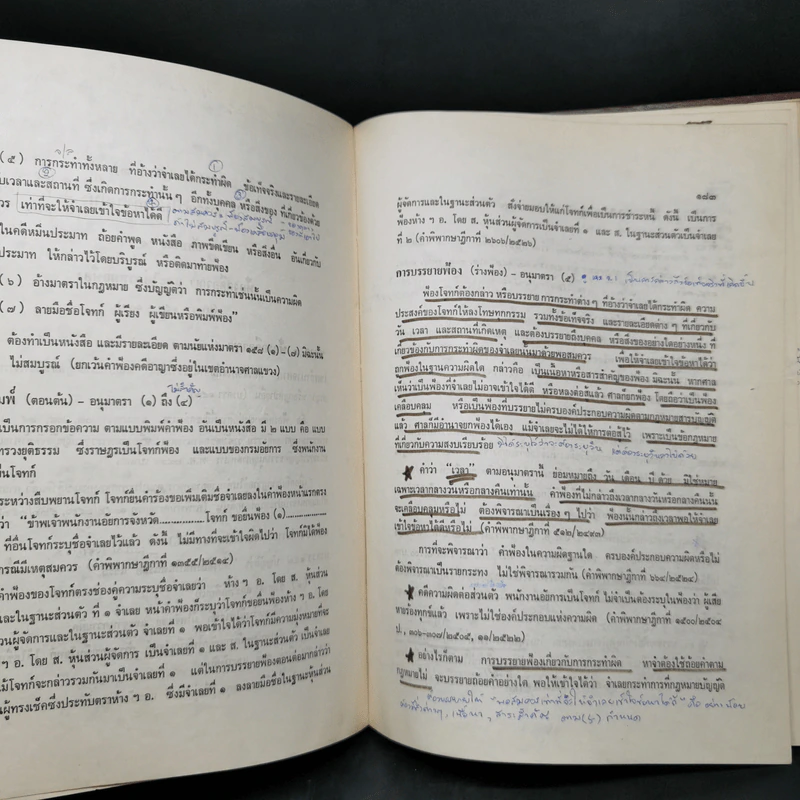 (๕) การกระทำทั้งหลาย ที่อ้างว่าจำเลยได้กระทำผิด ข้อเท็จจริงและรายละเอียด
บเวลาและสถานที่ ซึ่งเกิดการกระทำนั้น ๆ อีกทั้งบุคคล หรือสิ่งของ ที่เกี่ยวข้องด้วย
ควร เท่าที่จะให้จำเลยเข้าใจข้อหาได้ดี
ในคดีหมิ่นประมาท ถ้อยคำพูด หนังสือ ภาพขีดเขียน หรือสิ่งอื่น อันเกี่ยวกับ
ประมาท ให้กล่าวไว้โดยบริบูรณ์ หรือติดมาท้ายฟ้อง
(๖) อ้างมาตราในกฎหมาย ซึ่งบัญญัติว่า การกระทำเช่นนั้นเป็นความผิด
(๗) ลายมือชื่อโจทก์ ผู้เรียง ผู้เขียนหรือพิมพ์ฟ้อง"
ต้องทำเป็นหนังสือ และมีรายละเอียด ตามนัยแห่งมาตรา ๑๕๘ (๑)-(๗) มิฉะนั้น
ไม่สมบูรณ์ (ยกเว้นคำฟ้องคดีอาญาซึ่งอยู่ในเขตอำนาจศาลแขวง)
ไม่สำคัญ
มพ์ (ตอนต้น) - อนุมาตรา (๑) ถึง (๔)
เป็นการกรอกข้อความ ตามแบบพิมพ์คำฟ้อง อันเป็นหนังสือ มี ๒ แบบ คือ แบบ
รวงยุติธรรม ซึ่งราษฎรเป็นโจทก์ฟ้อง และแบบของกรมอัยการ ซึ่งพนักงาน
ป็นโจทก์
ระหว่างสืบพยานโจทก์ โจทก์ยื่นคำร้องขอเพิ่มเติมชื่อจำเลยลงในคำฟ้องหน้าแรกตรง
ว่า "ข้าพเจ้าพนักงานอัยการจังหวัด..................โจทก์ ขอยื่นฟ้อง (๑)..................
ที่อื่นโจทก์ระบุชื่อจำเลยไว้แล้ว ดังนี้ ไม่มีทางที่จะเข้าใจผิดไปว่า โจทก์มิได้ฟ้อง
รณีมีเหตุสมควร (คำพิพากษาฎีกาที่ ๑๓๕๕/๒๕๑๔)
คำฟ้องของโจทก์ตรงช่องคู่ความระบุชื่อจำเลยว่า ห้าง ฯ อ. โดย ส. หุ้นส่วน
และในฐานะส่วนตัว ที่ ๑ จำเลย หน้าคำฟ้องก็ระบุว่าโจทก์ขอยื่นฟ้องห้าง ฯ อ.
วนผู้จัดการและในฐานะส่วนตัว จำเลยที่ ๑ พอเข้าใจได้ว่าโจทก์มีความมุ่งหมายที่จะ
ฯ อ. โดย ส. หุ้นส่วนผู้จัดการ เป็นจำเลยที่ ๑ และ ส. ในฐานะส่วนตัว เป็นจำเลย
ม้โจทก์จะกล่าวรวมกันมาเป็นจำเลยที่ ๑ แต่ในการบรรยายฟ้องตอนต่อมากล่าวว่า
ผู้ทรงเช็คซึ่งประทับตราห้าง ฯ อ. ซึ่งมีจำเลยที่ ๑ ลงลายมือชื่อในฐานะหุ้นส่วน
๑๘๓
ผู้จัดการและในฐานะส่วนตัว สั่งจ่ายมอบให้แก่โจทก์เพื่อเป็นการชำระหนี้ ดังนี้ เป็นการ
ฟ้องห้าง ฯ อ. โดย ส. หุ้นส่วนผู้จัดการเป็นจำเลยที่ ๑ และ ส. ในฐานะส่วนตัวเป็นจำเลย
ที่ ๒ (คำพิพากษาฎีกาที่ ๒๖๐๖/๒๕๒๖)
การบรรยายฟ้อง (ร่างฟ้อง) - อนุมาตรา (๕)
ฟ้องโจทก์ต้องกล่าว หรือบรรยายการกระทำต่าง ๆ ที่อ้างว่าจำเลยได้กระทำผิด ความ
ประสงค์ของโจทก์ให้ลงโทษทกรรม รวมทั้งข้อเท็จจริง และรายละเอียดต่าง ๆ ที่เกี่ยวกับ
วัน เวลา และสถานที่เกิดเหตุ และต้องบรรยายถึงบุคคล หรือสิ่งของอย่างใดอย่างหนึ่ง ที่
เกี่ยวข้องกับการกระทำผิดของจำเลยนั้นมาด้วยพอสมควร เพื่อให้จำเลยเข้าใจข้อหาได้ว่า
ถูกฟ้องในฐานความผิดใด กล่าวคือ เป็นเนื้อหาหรือสาระสำคัญของฟ้อง มิฉะนั้น หากศาล
เห็นว่าเป็นฟ้องที่จำเลยไม่อาจเข้าใจได้ดี หรือหลงต่อสู้แล้ว ศาลก็ยกฟ้อง โดยถือว่าเป็นฟ้อง
เคลือบคลุม หรือเป็นฟ้องที่บรรยายไม่ครบองค์ประกอบความผิดตามกฎหมายสารบัญญัติ
แล้ว ศาลก็มีอำนาจยกฟ้องได้เอง แม้จำเลยจะไม่ได้ให้การต่อสู้ไว้ เพราะเป็นข้อกฎหมาย
ที่เกี่ยวกับความสงบเรียบร้อย
★ คำว่า "เวลา" ตามอนุมาตรานี้ ย่อมหมายถึง วัน เดือน ปี ด้วย มิใช่หมาย
เฉพาะเวลากลางวันหรือกลางคืนเท่านั้น คำฟ้องที่ไม่กล่าวถึงเวลากลางวันหรือกลางคืนนั้น
จะเคลือบคลุมหรือไม่ ต้องพิจารณาเป็นเรื่อง ๆ ไปว่า ฟ้องนั้นกล่าวถึงเวลาพอให้จำเลย
เข้าใจข้อหาได้ดีหรือไม่ (คำพิพากษาฎีกาที่ ๕๑๒/๒๔๙๓)
การที่จะพิจารณาว่า คำฟ้องในความผิดฐานใด ครบองค์ประกอบความผิดหรือไม่
ต้องพิจารณาเป็นรายกระทง ไม่ใช่พิจารณารวมกัน (คำพิพากษาฎีกาที่ ๖๖๔/๒๕๒๔)
★ คดีความผิดต่อส่วนตัว พนักงานอัยการเป็นโจทก์ ไม่จำเป็นต้องระบุในฟ้องว่า ผู้เสีย
หายร้องทุกข์แล้ว เพราะไม่ใช่องค์ประกอบแห่งความผิด (คำพิพากษาฎีกาที่ ๑๕๐๐/๒๕๐๔
ป., ๓๐๖-๓๐๗/๒๕๐๕, ๑๑/๒๕๒๒)
★ อย่างไรก็ตาม การบรรยายฟ้องเกี่ยวกับการกระทำผิด หาจำต้องใช้ถ้อยคำตาม
กฎหมายไม่ จะบรรยายถ้อยคำอย่างใด พอให้เข้าใจได้ว่า จำเลยกระทำการที่กฎหมายบัญญัติ